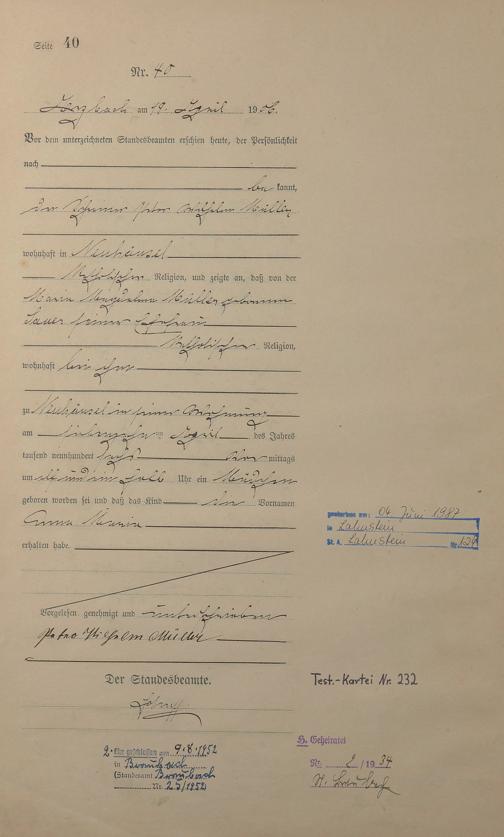 Seite 40
Nr. 40
am 19. April 1906.
Vor dem unterzeichneten Standesbeamten erschien heute, der Persönlichkeit
nach
bekannt,
der Peter Wilhelm Müller
wohnhaft in Neuhäusel
katholischer Religion, und zeigte an, daß von der
Maria Magdalena Müller geborenen
Sauer seiner Ehefrau
katholischer Religion,
wohnhaft bei ihm
zu Neuhäusel in seiner Wohnung
am siebenzehnten April des Jahres
tausend neunhundert sechs Vormittags
um elf und ein halb Uhr ein Mädchen
geboren worden sei und daß das Kind den Vornamen
Anna Maria
erhalten habe.
Vorgelesen, genehmigt und unterschrieben
Peter Wilhelm Müller
Der Standesbeamte.
gestorben am: 04. Juni 1987
in Lahnstein
St. A. Lahnstein Nr.
Test.-Kartei Nr. 232
2. Ehe geschlossen am 9.8.1952
in Braubach
(Standesamt Braubach
Nr. 23/1952
H. Geheiratet
Nr. 2/1934